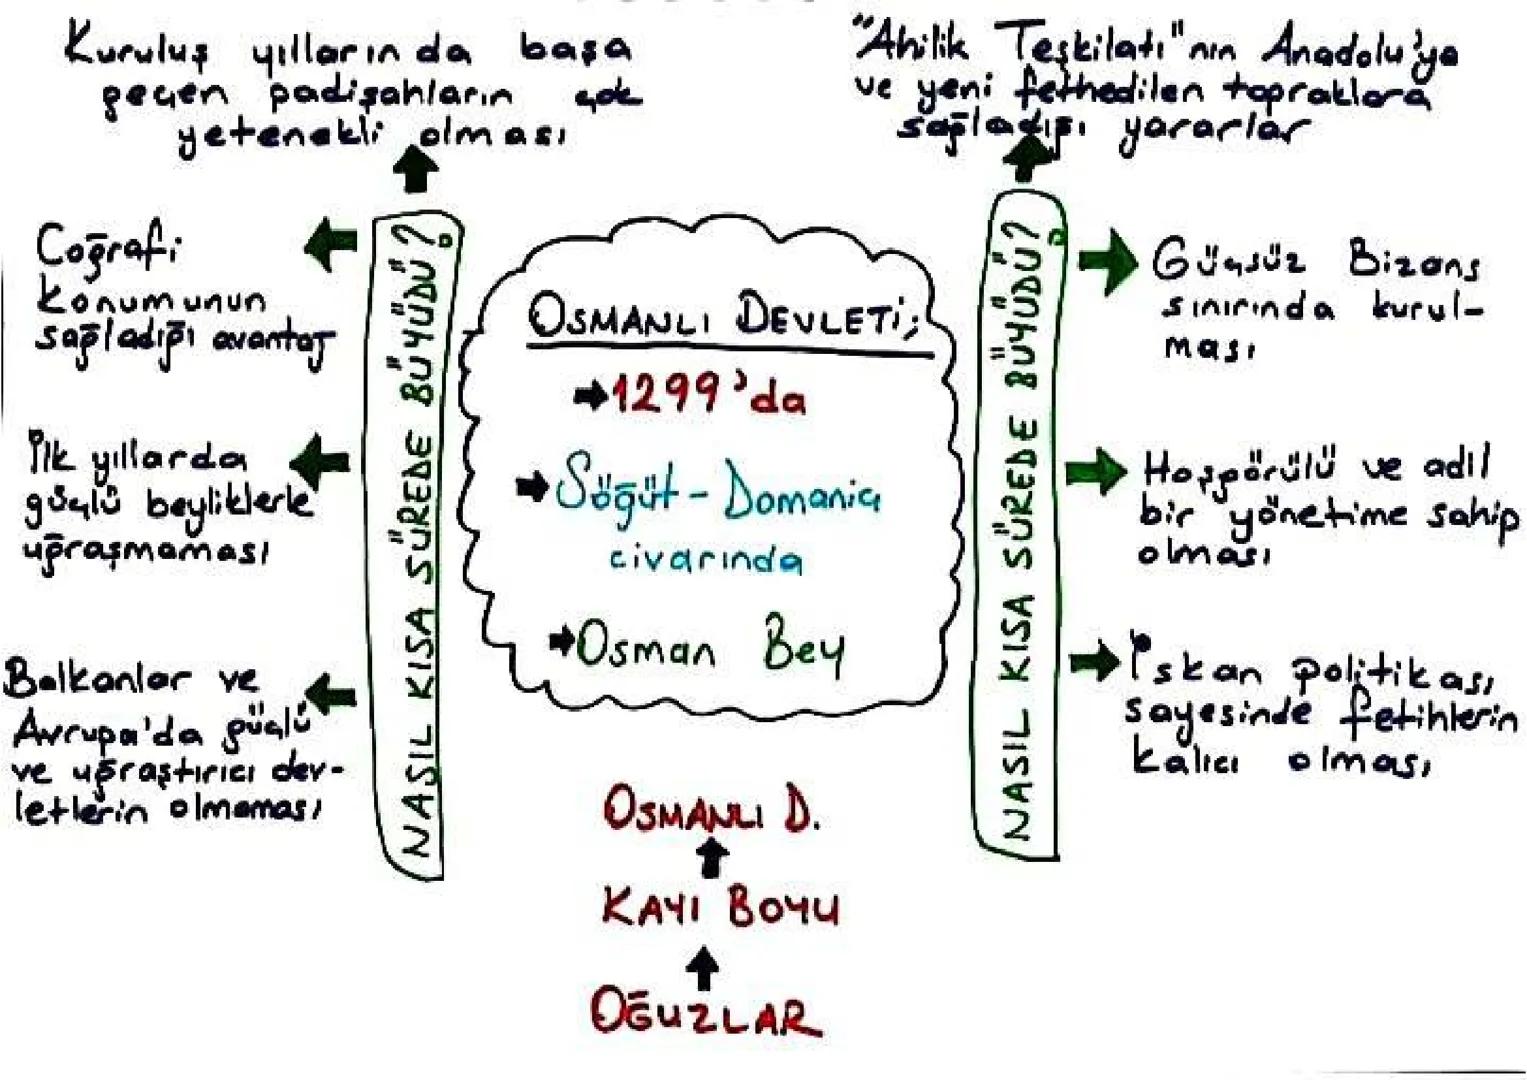 Kuruluş yıllarında başa
geçen padişahların çok
yetenekli olması
Coğrafi
konumunun
sağladığı avantaj
İlk yıllarda
güçlü beyliklerle
uğraşmaması
Balkanlar ve
Avrupa'da güçlü
ve uğraştırıcı dev-
letlerin olmaması
NASIL KISA SÜREDE BÜYÜDÜ?
OSMANLI DEVLETİ;
1299'da
Söğüt-Domaniç
civarında
Osman Bey
OSMANLI D.
KAYI BOYU
OĞUZLAR
NASIL KISA SÜREDE BÜYÜDÜ?
"Ahilik Teşkilatı"nın Anadolu'ya
ve yeni fethedilen topraklara
sağladığı yararlar
Güçsüz Bizans
sınırında kurul-
ması
Hoşgörülü ve adil
bir yönetime sahip
olması
İskan politikası
sayesinde fetihlerin
kalıcı olması